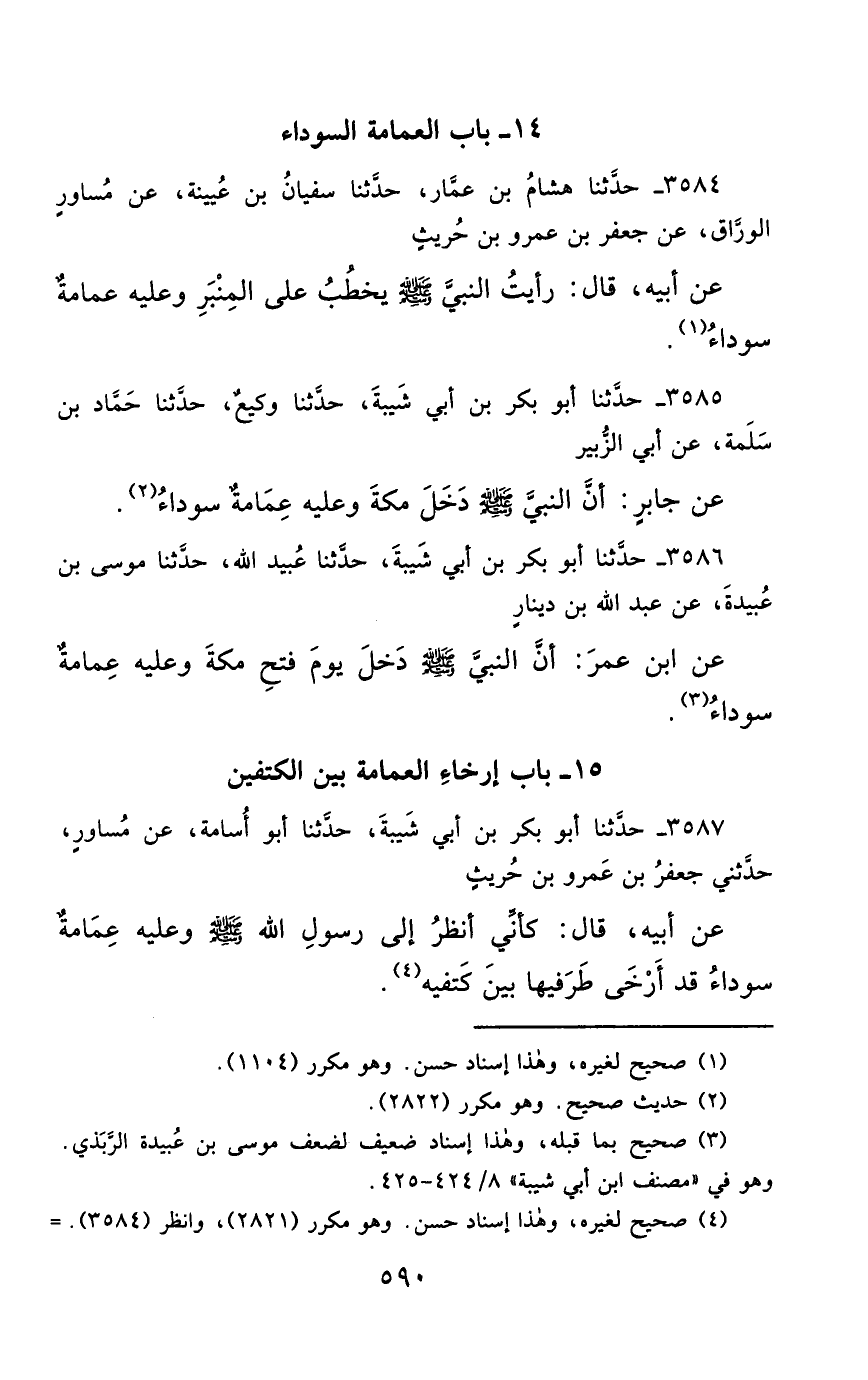 ١٤ـ باب العمامة السوداء
٣٥٨٤ـ حدَّثنا هشامُ بن عمَّار، حدَّثنا سفيانُ بن عُيينة، عن مُساورٍ
الورَّاق، عن جعفر بن عمرو بن حُريثٍ
عن أبيه، قال: رأيتُ النبيَّ ﷺ يخطُبُ على المِنْبَرِ وعليه عمامةٌ
سوداءُ(١).
٣٥٨٥ـ حدَّثنا أبو بكر بن أبي شَيبةَ، حدَّثنا وكيعٌ، حدَّثنا حَمَّاد بن
سَلَمة، عن أبي الزُّبير
عن جابرٍ: أنَّ النبيَّ ﷺ دَخَلَ مكةَ وعليه عِمَامةٌ سوداءُ(٢).
٣٥٨٦ـ حدَّثنا أبو بكر بن أبي شَيبةَ، حدَّثنا عُبيد الله، حدَّثنا موسى بن
عُبيدةَ، عن عبد الله بن دينارٍ
عن ابن عمرَ: أنَّ النبيَّ ﷺ دَخلَ يومَ فتحِ مكةَ وعليه عِمامةٌ
سوداءُ(٣).
١٥ـ باب إرخاءِ العمامة بين الكتفين
٣٥٨٧ـ حدَّثنا أبو بكر بن أبي شَيبةَ، حدَّثنا أبو أُسامة، عن مُساورٍ،
حدَّثني جعفرُ بن عَمرو بن حُريثٍ
عن أبيه، قال: كأنِّي أنظرُ إلى رسولِ الله ﷺ وعليه عِمَامةٌ
سوداءُ قد أَرْخَى طَرَفيها بينَ كَتفيه(٤).
(١) صحيح لغيره، وهٰذا إسناد حسن. وهو مكرر (١١٠٤).
(٢) حديث صحيح. وهو مكرر (٢٨٢٢).
(٣) صحيح بما قبله، وهٰذا إسناد ضعيف لضعف موسى بن عُبيدة الرَّبَذي.
وهو في «مصنف ابن أبي شيبة» ٨/ ٤٢٤-٤٢٥.
(٤) صحيح لغيره، وهٰذا إسناد حسن. وهو مكرر (٢٨٢١)، وانظر (٣٥٨٤). =
٥٩٠